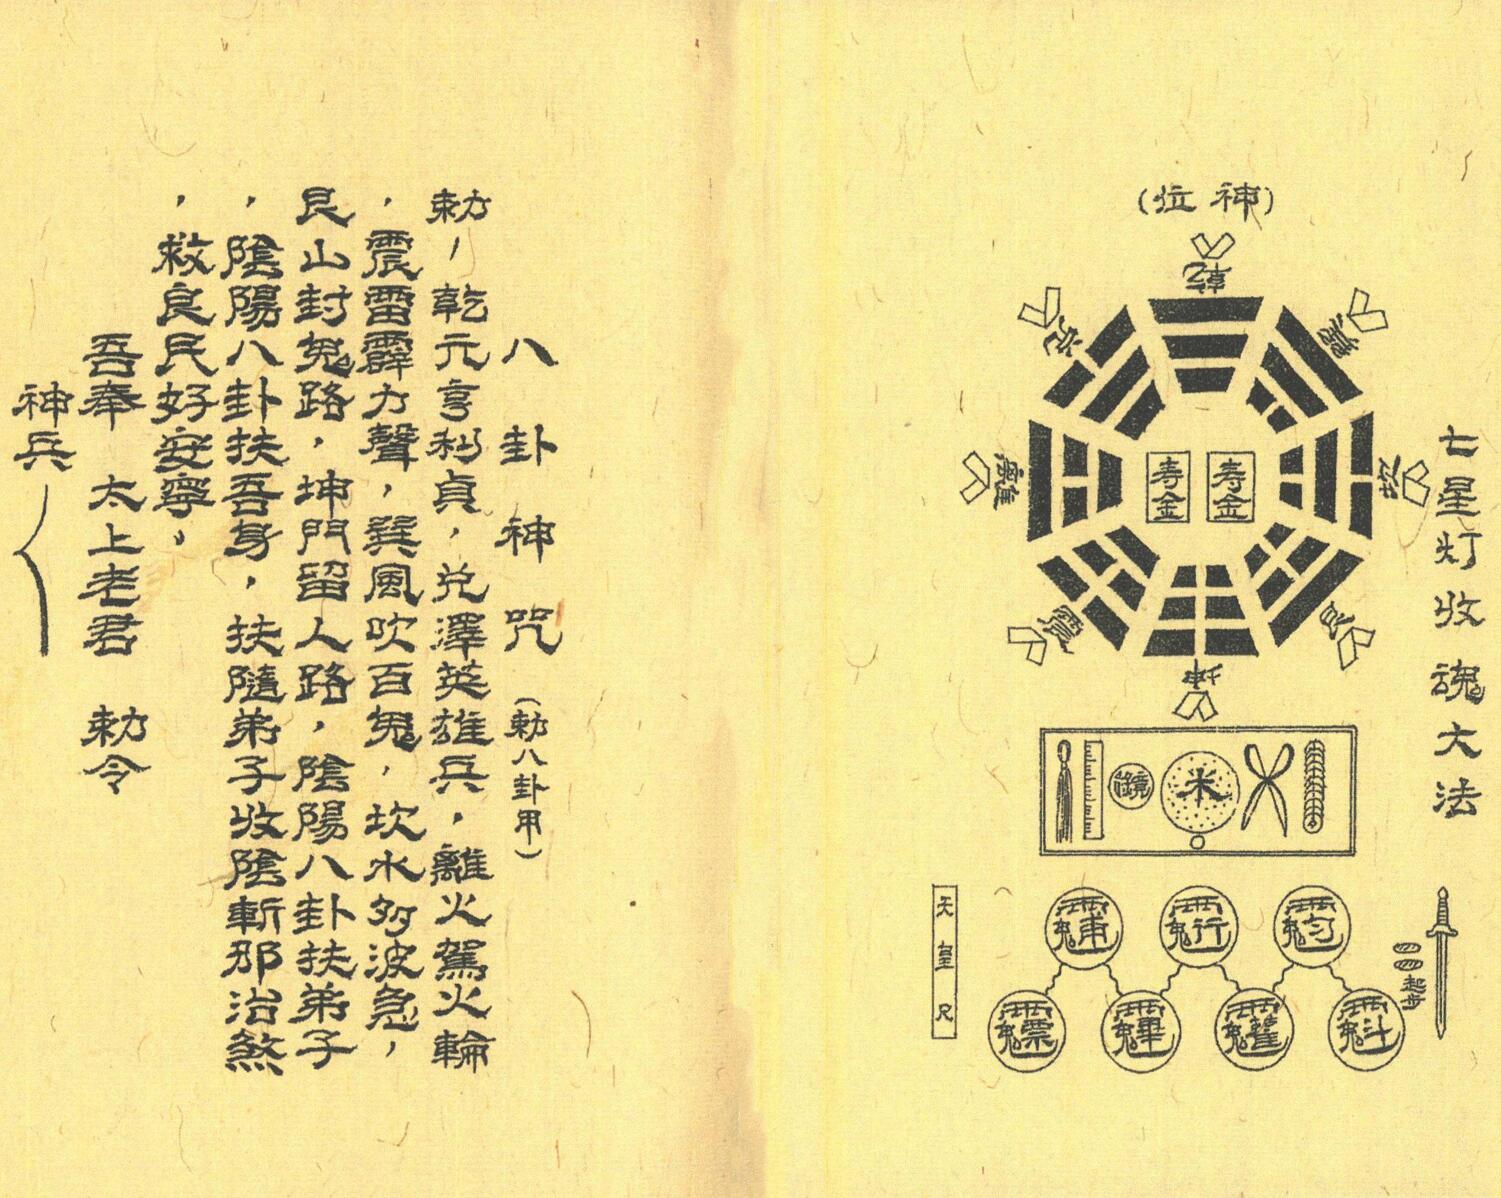 七星灯收魂大法
(神位)
乾
兌
巽
離
坎
震
艮
坤
寿金
寿金
鏡
米
天皇尺
起步
八卦神咒(勅八卦用)
勅,乾元亨利貞,兌澤英雄兵,離火駕火輪
,震雷霹力聲,巽風吹百鬼,坎水夛波急,
艮山封鬼路,坤門留人路,陰陽八卦扶弟子
,陰陽八卦扶吾身,扶隨弟子收陰斬邪治煞
,救良民好安寧,
吾奉 太上老君 勅令
神兵